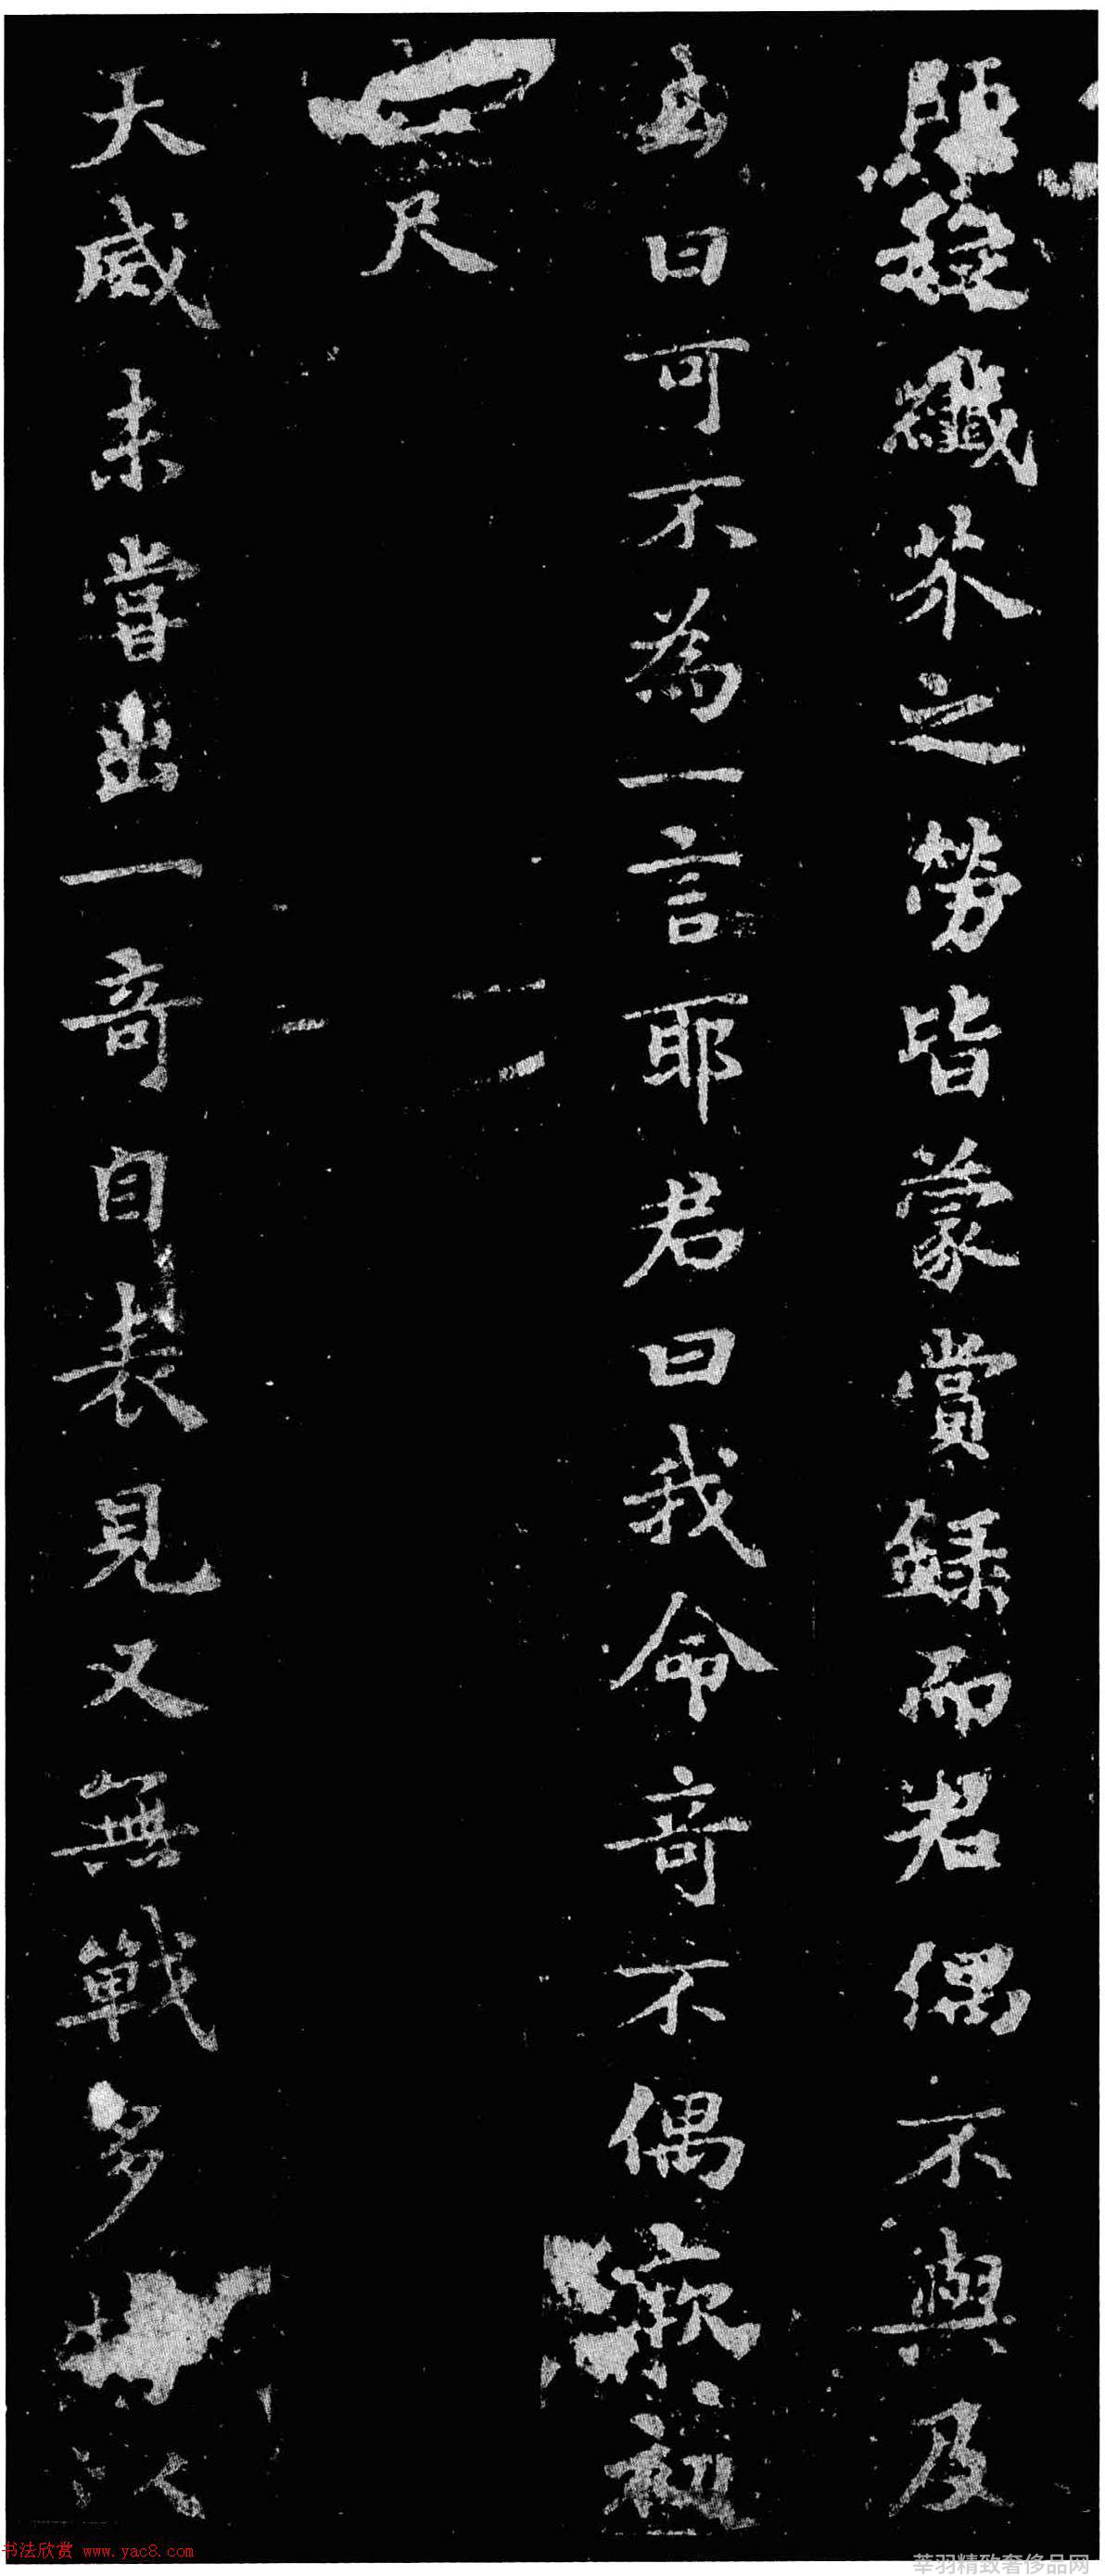 師徒纖芥之勞皆蒙賞録而君偶不與及
曰可不為一言耶君曰我命奇不偶
尺
天威未嘗出一奇自表見又無戰多以
书法欣赏 www.yac8.com
莘羽精致奢侈品网